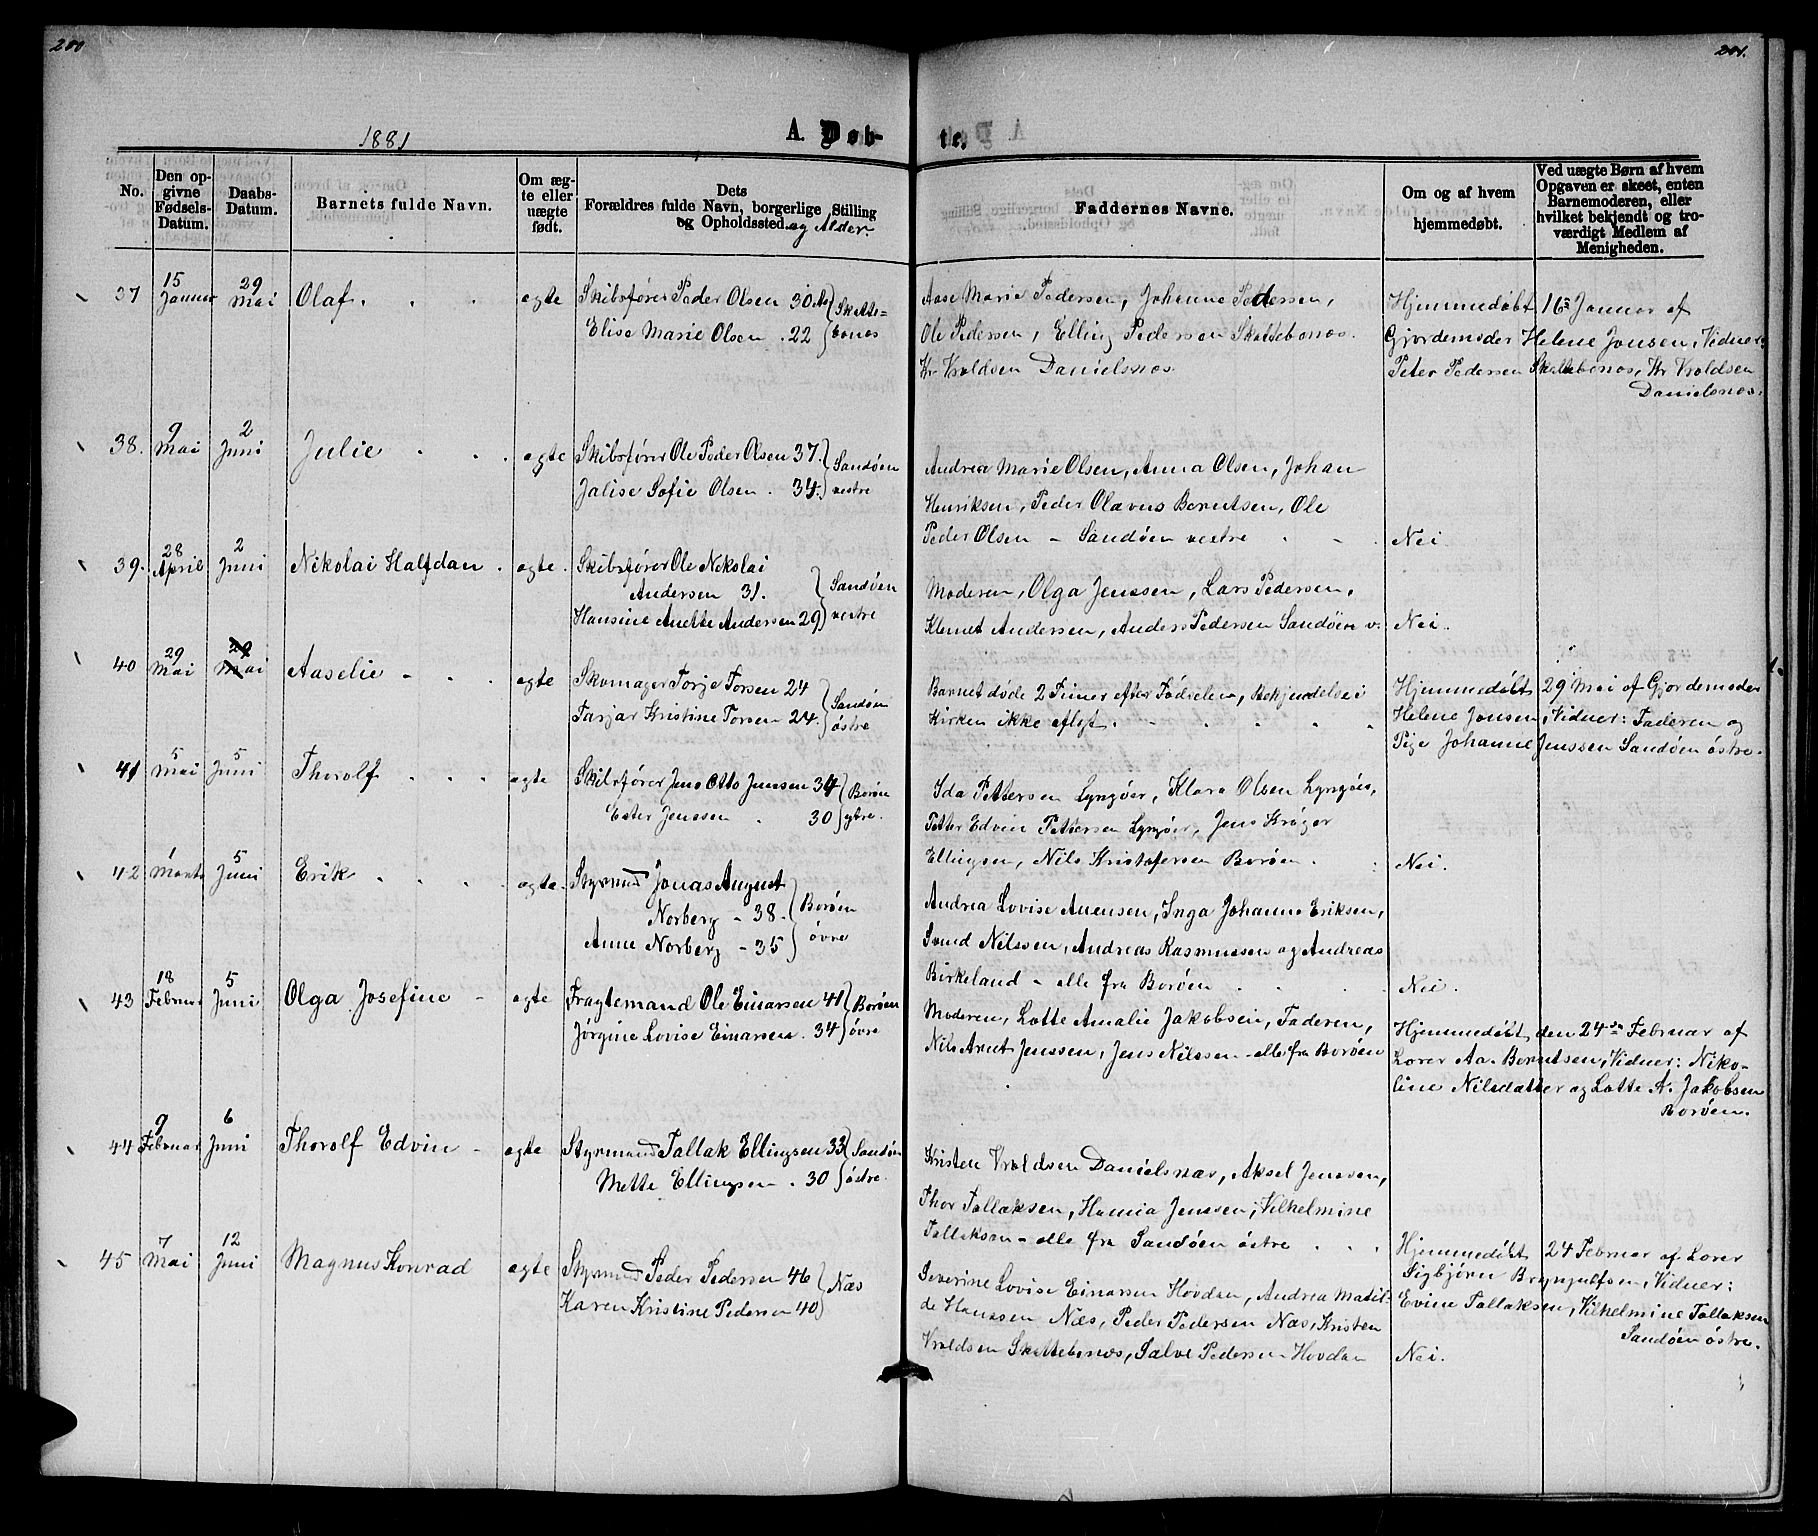 200
201.
1881
A. Døb-
te.
No.
Den op-
givne
Fødsels-
Datum.
Daabs-
Datum.
Barnets fulde Navn.
Om æg-
te eller
uægte
født.
Dets
Forældres fulde Navn, borgerlige Stilling
og Opholdssted. og Alder.
Faddernes Navne.
Om og af hvem
hjemmedøbt.
Ved uægte Børn af hvem
Opgaven er skeet, enten
Barnemoderen, eller
hvilket bekjendt og tro-
værdigt Medlem af
Menigheden.
37 15 Januar 29 Mai Olaf ægte
Skibsfører Peder Olsen 30 Aar Skatte-
Elise Marie Olsen . 22 bonæs
Aase Marie Pedersen, Johanne Pedersen,
Ole Pedersen, Elling Pedersen Skattebonæs.
Kr Vroldsen Danielsnæs
Hjemmedøbt 16 Januar af
Gjordemoder Helene Jonsen, Vidner:
Peter Pedersen Skattebonæs, Kr Vroldsen
Danielsnæs.
38. 9 Mai 2 Juni Julie ægte
Skibsfører Ole Peder Olsen 37 Sandøen
Jalise Sofie Olsen . 34. vestre
Andrea Marie Olsen, Anna Olsen, Johan
Henriksen, Peder Olavus Berntsen, Ole
Peder Olsen - Sandøen vestre
Nei
39. 28 April 2 Juni Nikolai Halfdan . ægte.
Skibsfører Ole Nikolai
Andersen 31. Sandøen
Hansine Anette Andersen 29 vestre
Moderen, Olga Jenssen, Lars Pedersen,
Klemet Andersen, Anders Pedersen Sandøen v.
Nei.
40 29 Mai 29 Mai Aaselie ægte
Skomager Torje Torsen 24 Sandøen
Tarjar Kristine Torsen 24. østre
Barnet døde 2 Timer efter Fødselen, Bekjendelse i
Kirken ikke aflagt.
Hjemmedøbt 29 Mai af Gjordemoder
Helene Jonsen, Vidner: Faderen og
Pige Johanne Jenssen Sandøen østre.
41 5 Mai 5 Juni Thorolf ægte
Skibsfører Jens Otto Jenssen 34 Borøen
Ester Jenssen . 30 ytre.
Ida Pettersen Lyngøer, Klara Olsen Lyngøer,
Petter Edvin Pettersen Lyngøer, Jens Krøger
Ellingsen, Nils Kristofersen Borøen.
Nei.
42 1 Marts 5 Juni Erik ægte.
Styrmand Jonas August
Norberg - 38. Borøen
Anne Norberg - 35 øvre
Andrea Lovise Auensen, Inga Johanne Eriksen,
Svend Nilssen, Andreas Rasmussen og Andreas
Birkeland - alle fra Borøen
Nei.
43 18 Februar 5 Juni Olga Josefine - ægte
Fragtemand Ole Einarsen 41 Borøen
Jørgine Lovise Einarsen . 34 øvre
Moderen, Lotte Amalie Jakobsen, Faderen,
Nils Arnt Jenssen, Jens Nilssen - alle fra Borøen
Hjemmedøbt den 24de Februar af
Lærer Aa. Berntsen, Vidner: Niko-
line Nilsdatter og Lotte A. Jakobsen
Borøen.
44 9 Februar 6 Juni Thorolf Edvin - ægte
Styrmand Tallak Ellingsen 33 Sandøen
Mette Ellingsen . 30 østre.
Kristen Vroldsen Danielsnæs, Aksel Jenssen,
Thor Tallaksen, Hamia Jenssen, Vilhelmine
Tallaksen - alle fra Sandøen østre
Hjemmedøbt 24 Februar af Lærer
Sigbjørn Brynjulfsen, Vidner:
Evine Tallaksen, Vilhelmine Tallaksen
Sandøen østre.
45 7 Mai 12 Juni Magnus Konrad ægte
Styrmand Peder Pedersen 46 Næs
Karen Kristine Pedersen 40
Severine Lovise Einarsen Hovdan, Andrea Matil-
de Hanssen Næs, Peder Pedersen Næs, Kristen
Vroldsen Skattebonæs, Salve Pedersen Hovdan
Nei.